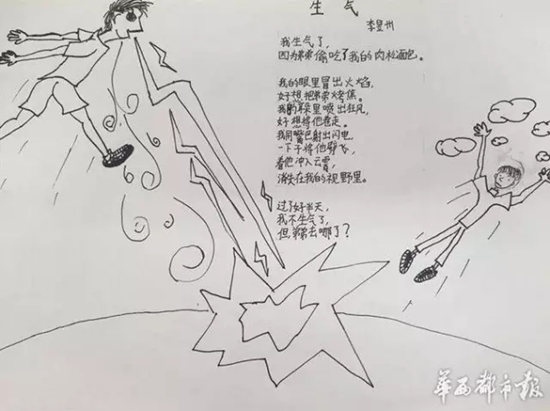 生气
李昱州
我生气了,
因为弟弟偷吃了我的肉松面包。
我的眼里冒出火焰,
好想把弟弟烤焦。
我的鼻里喷出狂风,
好想将他卷走。
我用嘴巴射出闪电,
一下子将他劈飞,
看他冲入云霄,
消失在我的视野里。
过了好半天,
我不生气了,
但弟弟去哪了?
华西都市报